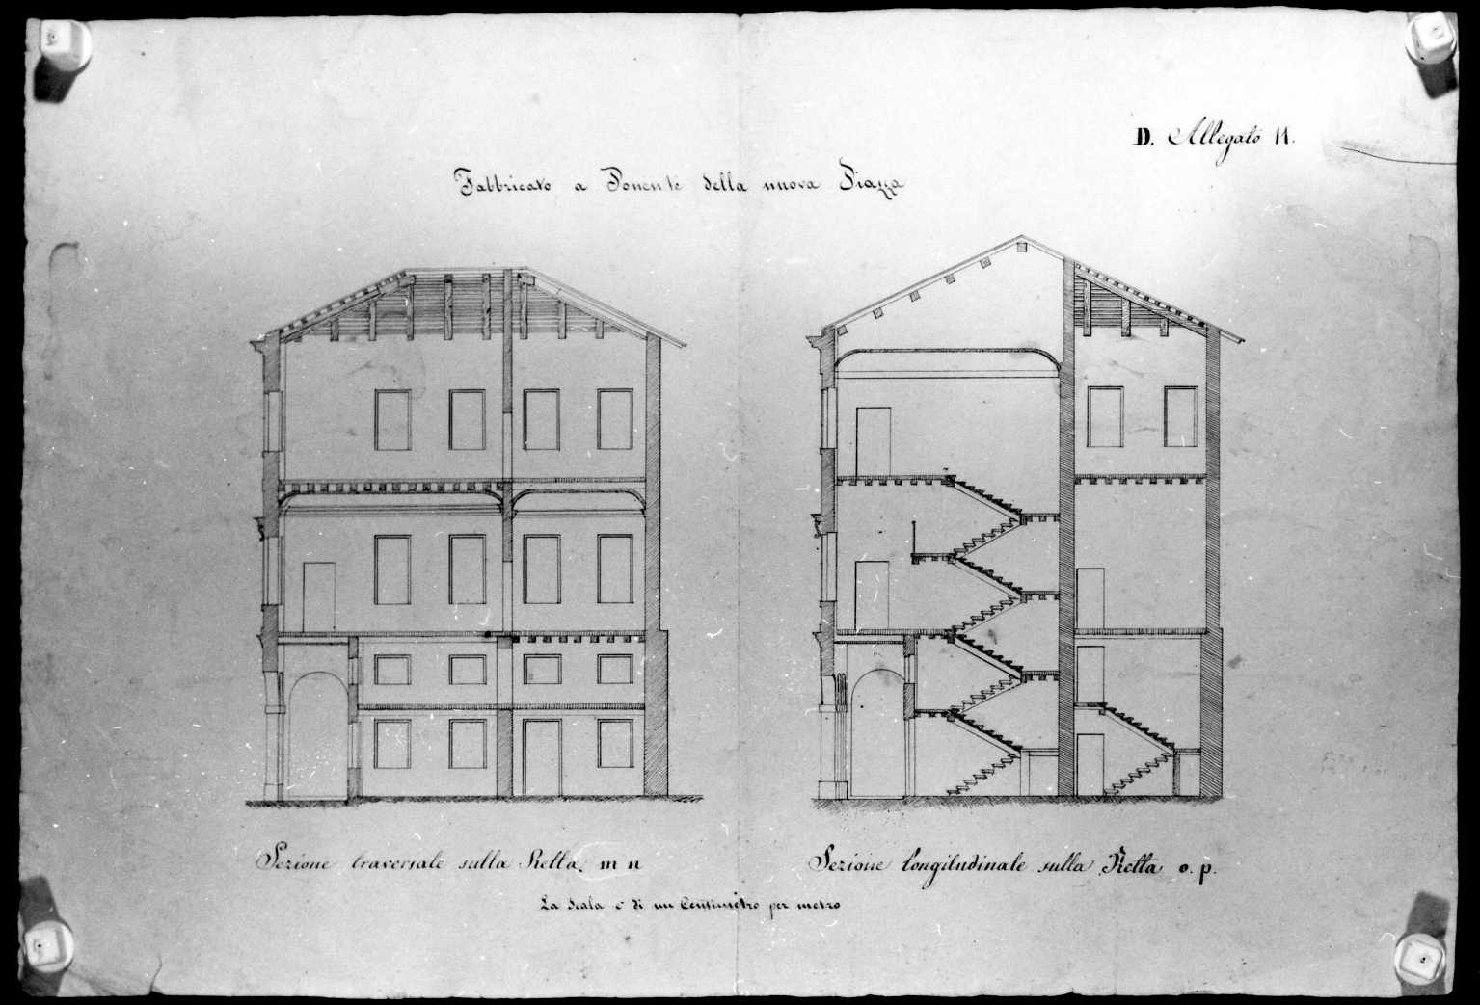 D. Allegato 11.
Fabbricato a Ponente della nuova Piazza
Sezione traversale sulla Retta. m n
Sezione longitudinale sulla Retta o. p.
La Scala è di un Centimetro per metro